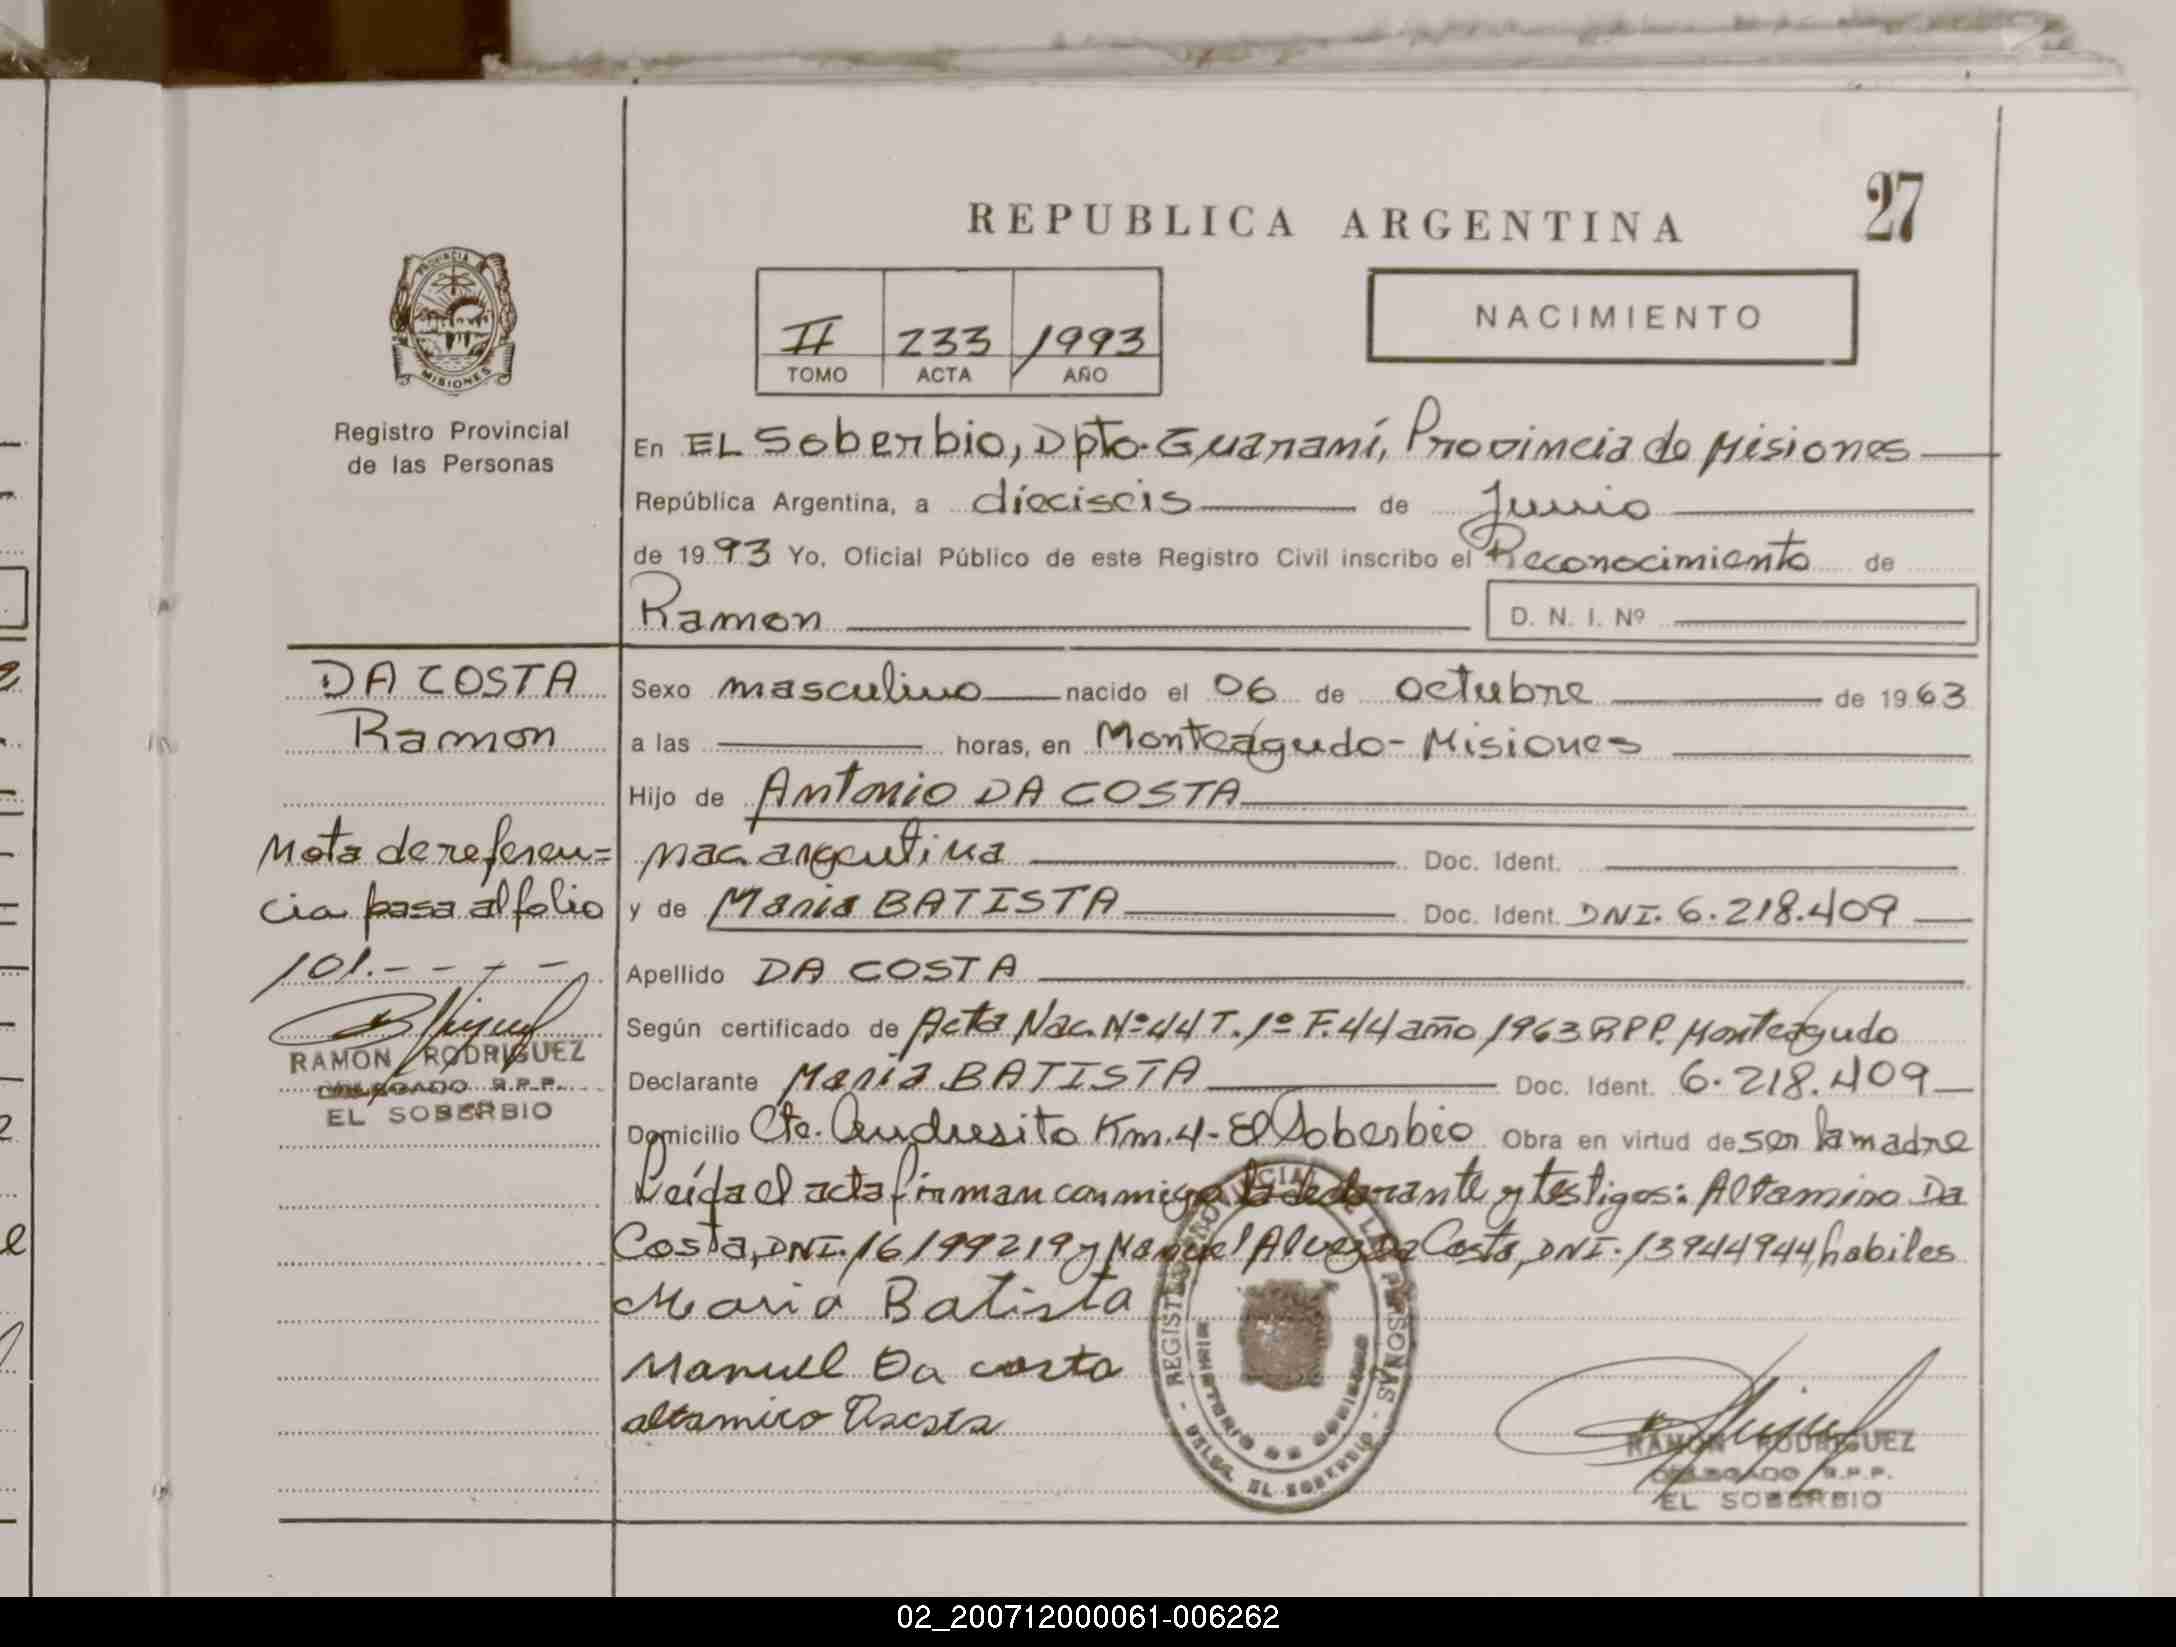 27
REPUBLICA ARGENTINA
PROVINCIA DE
MISIONES
NACIMIENTO
II 233 1993
TOMO ACTA AÑO
Registro Provincial
de las Personas
En EL Soberbio, Dpto. Guaraní, Provincia de Misiones
República Argentina, a dieciseis de Junio
de 1993 Yo, Oficial Público de este Registro Civil inscribo el Reconocimiento de
Ramon D. N. I. Nº
DA COSTA
Ramon
Nota de referen=
cia pasa al folio
101.- - - -
RAMON RODRIGUEZ
DELEGADO R.P.P.
EL SOBERBIO
Sexo masculino nacido el 06 de octubre de 1963
a las horas, en Monteagudo - Misiones
Hijo de Antonio DA COSTA
nac. argentina Doc. Ident.
y de Maria BATISTA Doc. Ident. DNI. 6.218.409
Apellido DA COSTA
Según certificado de Acta Nac. Nº 44 T. 1º F. 44 año 1963 RPP. Monteagudo
Declarante Maria BATISTA Doc. Ident. 6.218.409
Domicilio Cte. Andresito Km. 4 - El Soberbio Obra en virtud de ser la madre
Leída el acta firman conmigo la declarante y testigos: Altamiro Da
Costa, DNI. 16199219 y Manuel Alves Da Costa, DNI. 13944944, habiles
Maria Batista
Manuel Da costa
altamiro Dacosta
REGISTRO PROVINCIAL DE LAS PERSONAS
MINISTERIO DE GOBIERNO
- DELEG. EL SOBERBIO -
RAMON RODRIGUEZ
DELEGADO R.P.P.
EL SOBERBIO
02_200712000061-006262